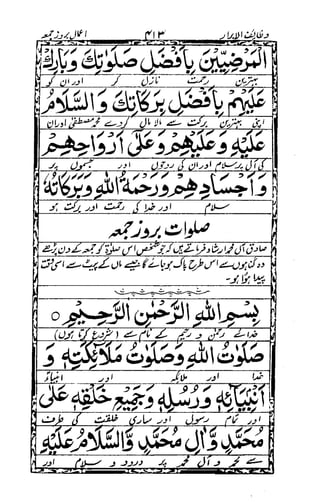 وظائف الابرار ۴۱۳ اعمال بروز جمعہ
الْمَرْضِيِّيْنَ بِاَفْضَلِ صَلَوَاتِكَ وَبَارِكْ
بہترین رحمت نازل کر اور ان کو
عَلَيْهِمْ بِاَفْضَلِ بَرَكَاتِكَ وَالسَّلَامُ
اپنی بہترین برکت سے مالا مال کر دے محمد مصطفیٰ اور ان
عَلَيْهِ وَعَلَيْهِمْ وَعَلٰى اَرْوَاحِهِمْ
کی آل پر سلام اور ان کی روحوں اور جسموں پر
وَاَجْسَادِهِمْ وَرَحْمَةُ اللّٰهِ وَبَرَكَاتُهٗ
سلام اور خدا کی رحمت اور برکت ہو
صلوات بروز جمعہ
صادق آل محمد ارشاد فرماتے ہیں کہ جو شخص اس صلوٰۃ کو جمعہ کے دن پڑھے
وہ گناہوں سے اس طرح پاک ہو جائے گا جیسے ماں کے پیٹ سے اسی وقت
پیدا ہوا ہو۔
بِسْمِ اللّٰهِ الرَّحْمٰنِ الرَّحِيْمِ ○
خدائے رحمٰن و رحیم کے نام سے (شروع کرتا ہوں)
صَلَوَاتُ اللّٰهِ وَصَلَوَاتُ مَلَآئِكَتِهٖ وَ
خدا اور ملائکہ اور انبیاء
اَنْبِيَآئِهٖ وَرُسُلِهٖ وَجَمِيْعِ خَلْقِهٖ عَلٰى
اور تمام رسول اور ساری خلقت کی طرف
مُحَمَّدٍ وَّاٰلِ مُحَمَّدٍ وَالسَّلَامُ عَلَيْهِ
سے محمد و آل محمد پر درود و سلام اور